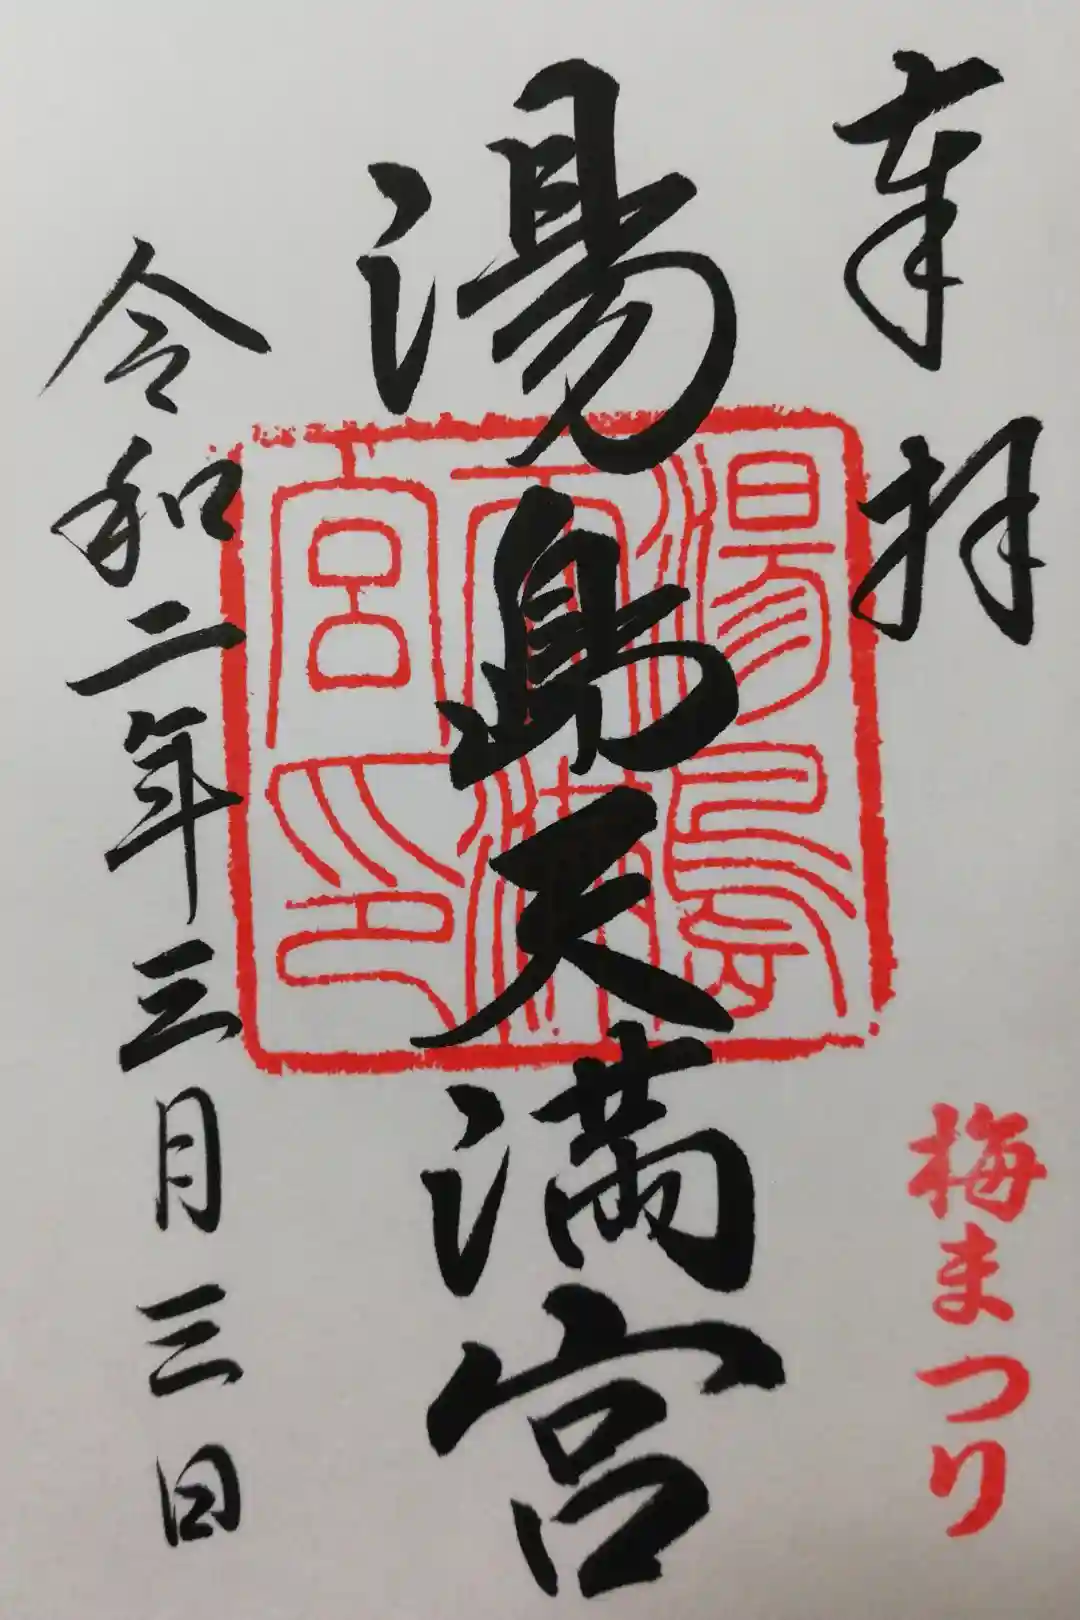 奉拝
梅まつり
湯島天満宮
湯島
天満
宮印
令和二年三月三日